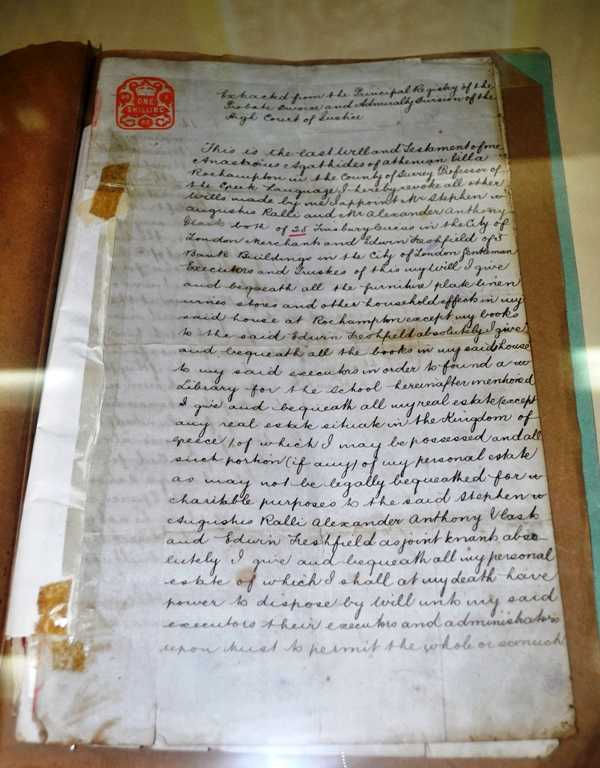 ONE
SHILLING
Extracted from the Principal Registry of the
Probate Divorce and Admiralty Division of the
High Court of Justice
This is the last Will and Testament of me
Anastasius Agathides of Athenian Villa
Rochampton in the County of Surrey Professor of
the Greek Language I hereby revoke all other
Wills made by me I appoint Mr Stephen
Augustus Ralli and Mr Alexander Anthony
Vlasto both of 25 Finsbury Circus in the City of
London Merchants and Edwin Freshfield of 5
Bank Buildings in the City of London Gentleman
Executors and Trustees of this my Will I give
and bequeath all the furniture plate linen
wines stores and other household effects in my
said house at Rochampton except my books
to the said Edwin Freshfield absolutely I give
and bequeath all the books in my said house
to my said executors in order to found a
Library for the School hereinafter mentioned
I give and bequeath all my real estate (except
any real estate situate in the Kingdom of
Greece) of which I may be possessed and all
such portion (if any) of my personal estate
as may not be legally bequeathed for
charitable purposes to the said Stephen
Augustus Ralli Alexander Anthony Vlasto
and Edwin Freshfield as joint tenants abso
lutely I give and bequeath all my personal
estate of which I shall at my death have
power to dispose by will unto my said
executors their executors and administrators
upon trust to permit the whole or so much